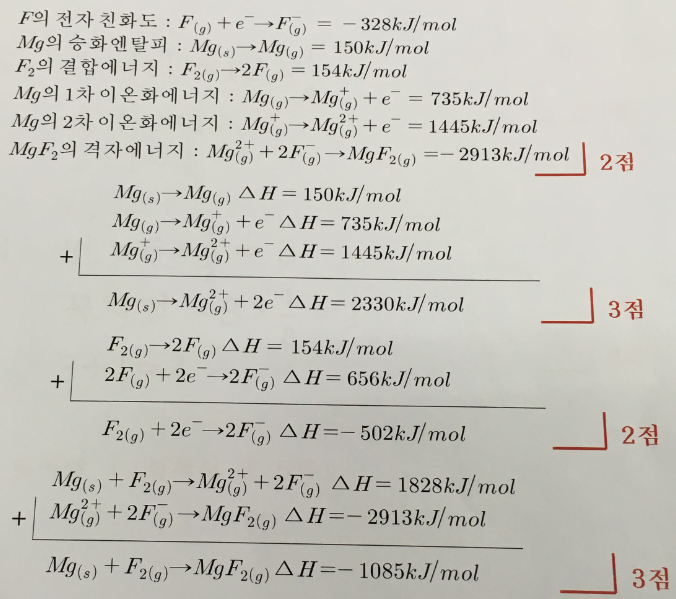 F의 전자 친화도 : F(g) + e⁻→F⁻(g) = −328kJ/mol
Mg의 승화엔탈피 : Mg(s)→Mg(g) = 150kJ/mol
F₂의 결합에너지 : F₂(g)→2F(g) = 154kJ/mol
Mg의 1차 이온화에너지 : Mg(g)→Mg⁺(g) + e⁻ = 735kJ/mol
Mg의 2차 이온화에너지 : Mg⁺(g)→Mg²⁺(g) + e⁻ = 1445kJ/mol
MgF₂의 격자에너지 : Mg²⁺(g) + 2F⁻(g)→MgF₂(g) =−2913kJ/mol
2점
Mg(s)→Mg(g) △H = 150kJ/mol
Mg(g)→Mg⁺(g) + e⁻ △H = 735kJ/mol
+ Mg⁺(g)→Mg²⁺(g) + e⁻ △H = 1445kJ/mol
Mg(s)→Mg²⁺(g) + 2e⁻ △H = 2330kJ/mol
3점
F₂(g)→2F(g) △H = 154kJ/mol
+ 2F(g) + 2e⁻→2F⁻(g) △H = 656kJ/mol
F₂(g) + 2e⁻→2F⁻(g) △H =−502kJ/mol
2점
Mg(s) + F₂(g)→Mg²⁺(g) + 2F⁻(g) △H = 1828kJ/mol
+ Mg²⁺(g) + 2F⁻(g)→MgF₂(g) △H =−2913kJ/mol
Mg(s) + F₂(g)→MgF₂(g) △H =−1085kJ/mol
3점